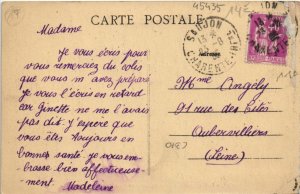 45435
CARTE POSTALE
Madame
je vous écris pour
vous remerciez du colis
que vous m'avez préparé
je vous l'écris en retard
car Ginette ne me l'avais
pas dit. J'espère que
vous êtes toujours en
bonnes santé. je vous em-
brasse bien affectueuse-
ment Madeleine
SAUJON
CHARENTE-INFRE
Mme Angély
91 rue des Cités
Aubervilliers
(Seine)